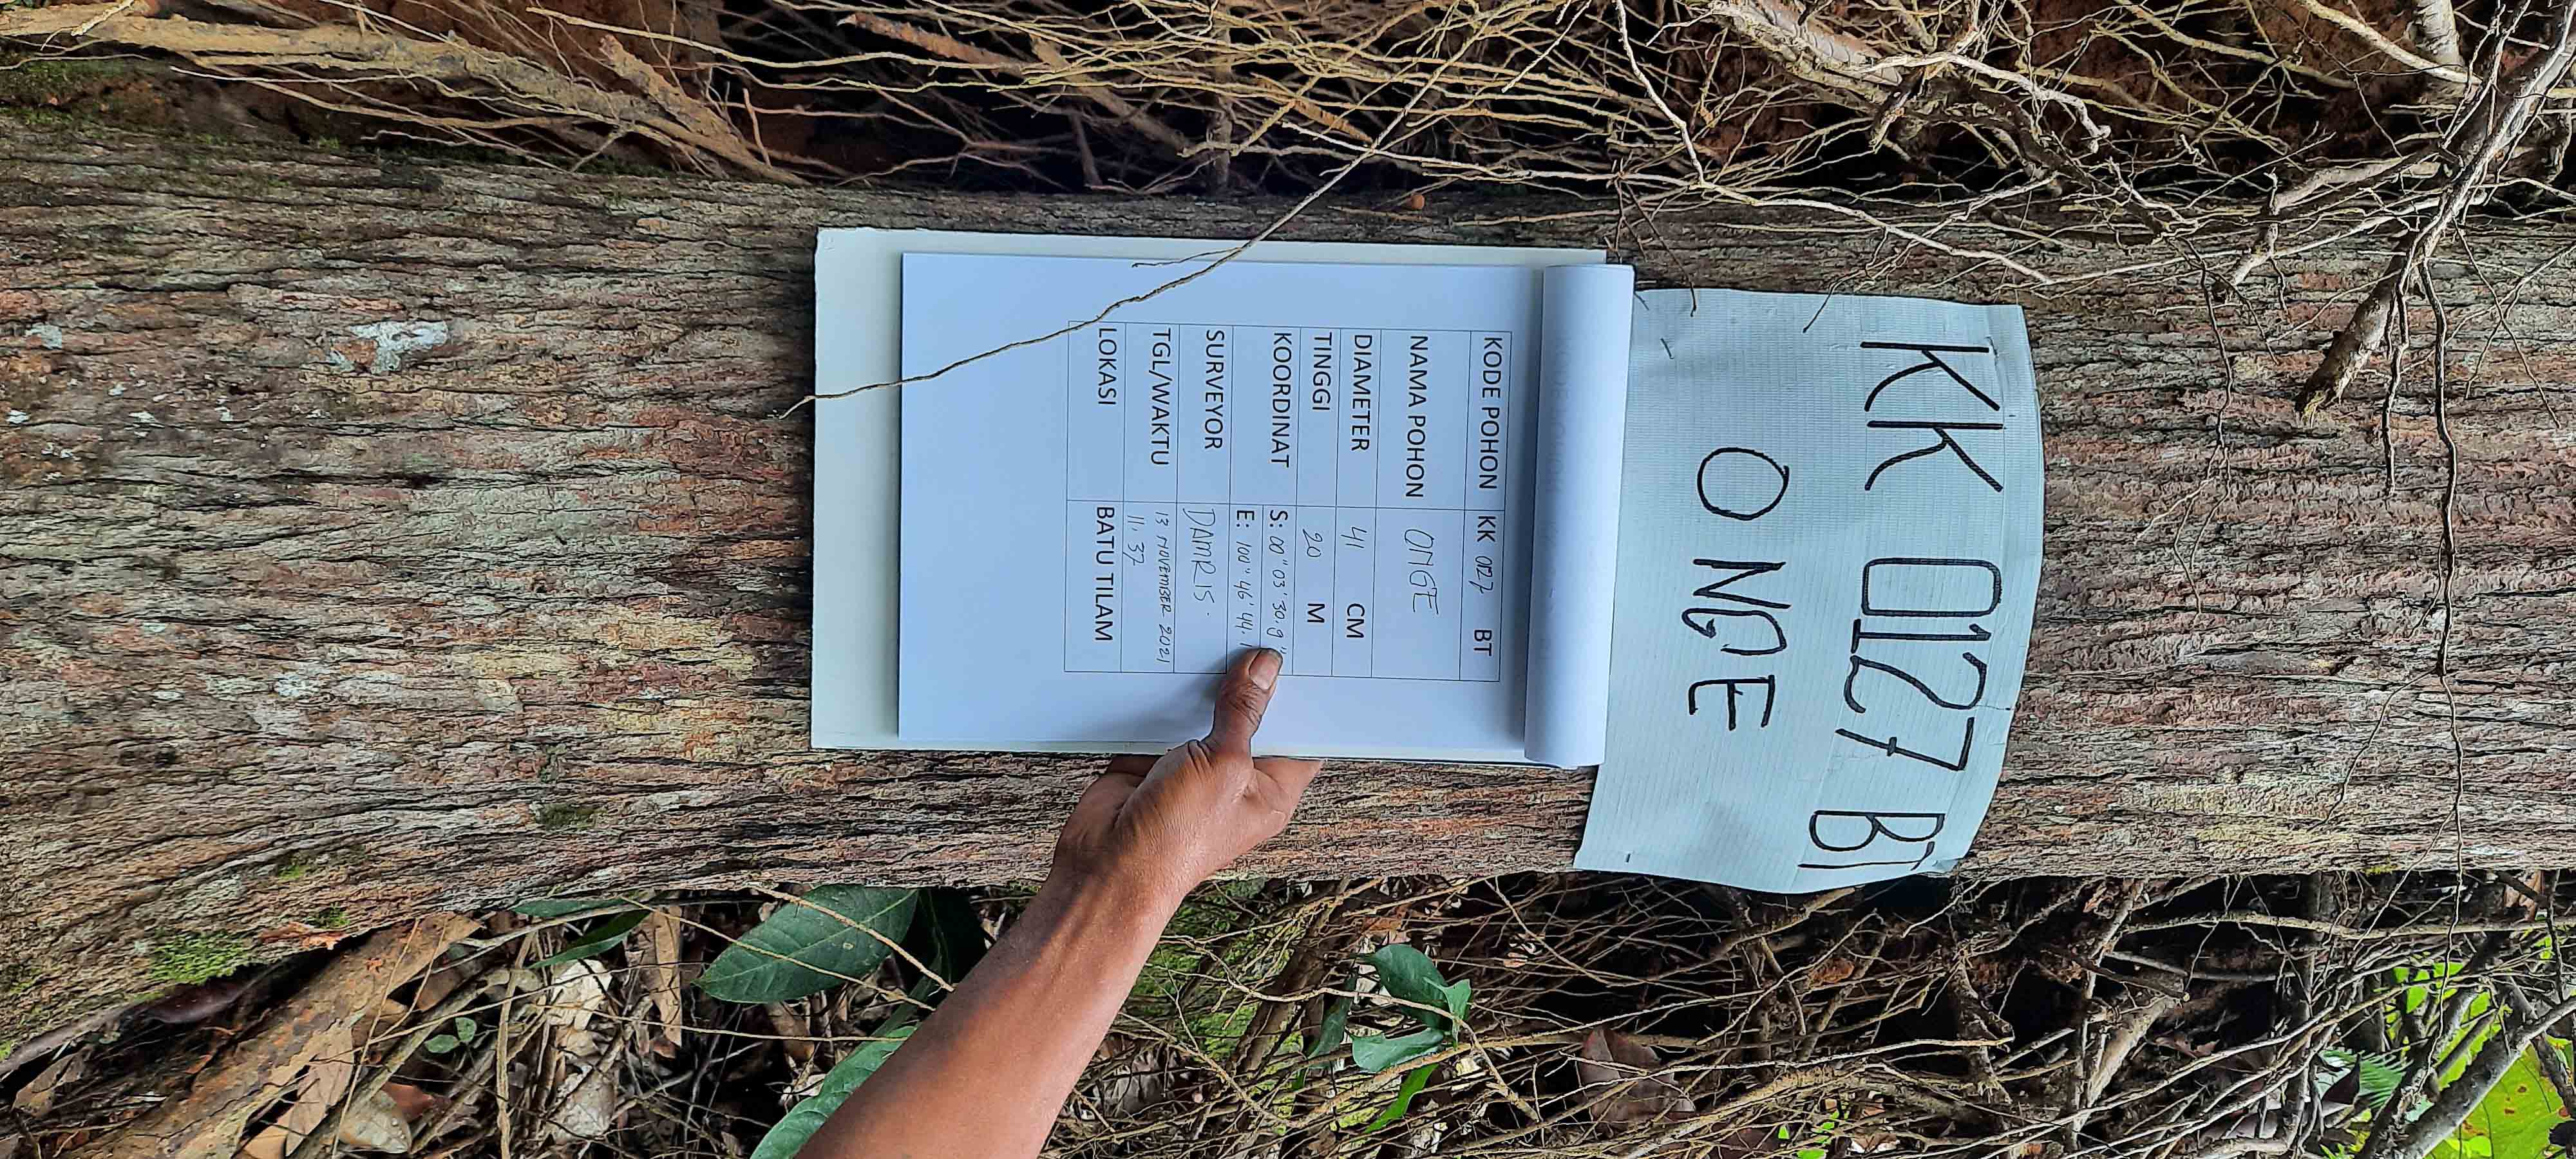 KK 0127 BT
ONGE
KODE POHON KK 0127 BT
NAMA POHON ONGE
DIAMETER 41 CM
TINGGI 20 M
KOORDINAT S: 00" 03' 30.9"
E: 100" 46' 44.
SURVEYOR DAMRIS.
TGL/WAKTU 13 NOVEMBER 2021
11.37
LOKASI BATU TILAM